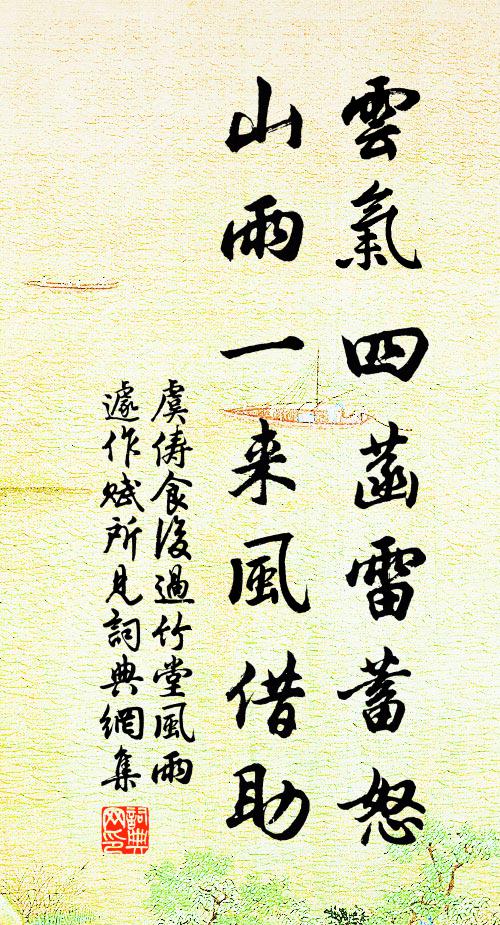 雲氣四菡雷蓄怒
山雨一来風借助
虞儔食後過竹堂風雨
遽作賦所見詞典網集
詞典
网印